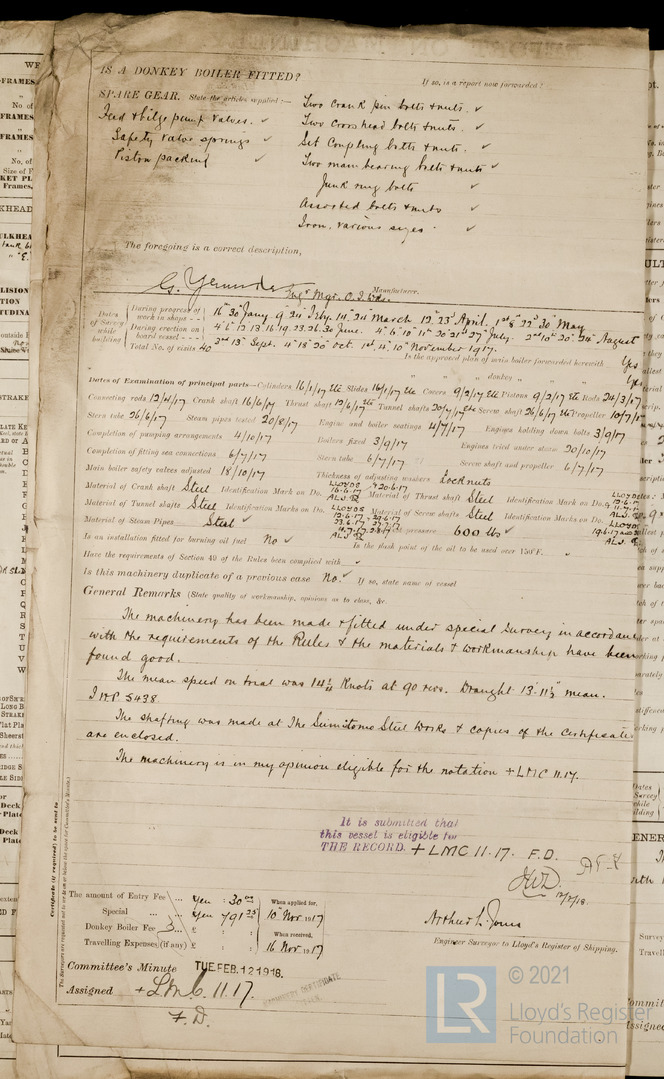 IS A DONKEY BOILER FITTED?
If so, is a report now forwarded?
SPARE GEAR. State the articles supplied:—
Feed & bilge pump valves. ✓
Safety valve springs ✓
Piston packing ✓
Two crank pin bolts & nuts. ✓
Two crosshead bolts & nuts. ✓
Set Coupling bolts & nuts. ✓
Two main bearing bolts & nuts ✓
Junk ring bolts ✓
Assorted bolts & nuts ✓
Iron. various sizes. ✓
The foregoing is a correct description,
Mgr. O. I. Manufacturer.
Dates of Survey while building
During progress of work in shops - - 16th 30th Jany. 9. 24 Feby. 14. 24 March 12. 23 April. 1st 8 22 30 May
During erection on board vessel - - - 4. 6. 12. 13. 16. 19. 23. 26. 30 June. 4th 6th 10th 11th 20th 21st 27th July. 2nd 10th 20th 24th August
Total No. of visits 40 2nd 13th Sept. 4th 18th 20th Oct. 1st 4th 10th November 1917.
Is the approved plan of main boiler forwarded herewith Yes
" " " donkey " " " Yes
Dates of Examination of principal parts—Cylinders 16/1/17 etc Slides 16/1/17 etc Covers 9/2/17 etc Pistons 9/2/17 etc Rods 24/3/17
Connecting rods 12/4/17 Crank shaft 16/6/17 Thrust shaft 12/6/17 etc Tunnel shafts 20/7/17 etc Screw shaft 26/6/17 etc Propeller 10/7/17
Stern tube 26/6/17 Steam pipes tested 20/8/17 Engine and boiler seatings 4/7/17 Engines holding down bolts 3/9/17
Completion of pumping arrangements 4/10/17 Boilers fixed 3/9/17 Engines tried under steam 20/10/17
Completion of fitting sea connections 6/7/17 Stern tube 6/7/17 Screw shaft and propeller 6/7/17
Main boiler safety valves adjusted 18/10/17 Thickness of adjusting washers Locknuts
Material of Crank shaft Steel Identification Mark on Do. LLOYDS 16.6.17 A.L.J. Material of Thrust shaft Steel Identification Mark on Do. LLOYDS A.L.J.
Material of Tunnel shafts Steel Identification Marks on Do. LLOYDS A.L.J. Material of Screw shafts Steel Identification Marks on Do. LLOYDS A.L.J.
Material of Steam Pipes Steel ✓ pressure 600 lbs ✓
Is an installation fitted for burning oil fuel No ✓ Is the flash point of the oil to be used over 150°F.
Have the requirements of Section 49 of the Rules been complied with
Is this machinery duplicate of a previous case No. ✓ If so, state name of vessel
General Remarks (State quality of workmanship, opinions as to class, &c.
The machinery has been made & fitted under special Survey in accordance
with the requirements of the Rules & the materials & workmanship have been
found good.
The mean speed on trial was 14¼ Knots at 90 revs. Draught 13-11½ mean.
I.H.P. 5438.
The shafting was made at The Sumitomo Steel Works & copies of the Certificate
are enclosed.
The machinery is in my opinion eligible for the notation + LMC 11.17.
It is submitted that
this vessel is eligible for
THE RECORD. + LMC 11.17. F.D.
12/2/18.
Certificate (if required) to be sent to
The Surveyors are requested not to write on or below the space for Committee's Minute.
The amount of Entry Fee ... Yen : 30.00 When applied for,
Special ... ... Yen 791.25 10 Nov 1917
Donkey Boiler Fee ... £ : : When received,
Travelling Expenses (if any) £ : : 16 Nov. 1917
Arthur L. Jones
Engineer Surveyor to Lloyd's Register of Shipping.
Committee's Minute TUE. FEB. 12 1918.
Assigned + L.M.C. 11.17.
F.D.
MACHINERY CERTIFICATE
LR
© 2021
Lloyd's Register
Foundation